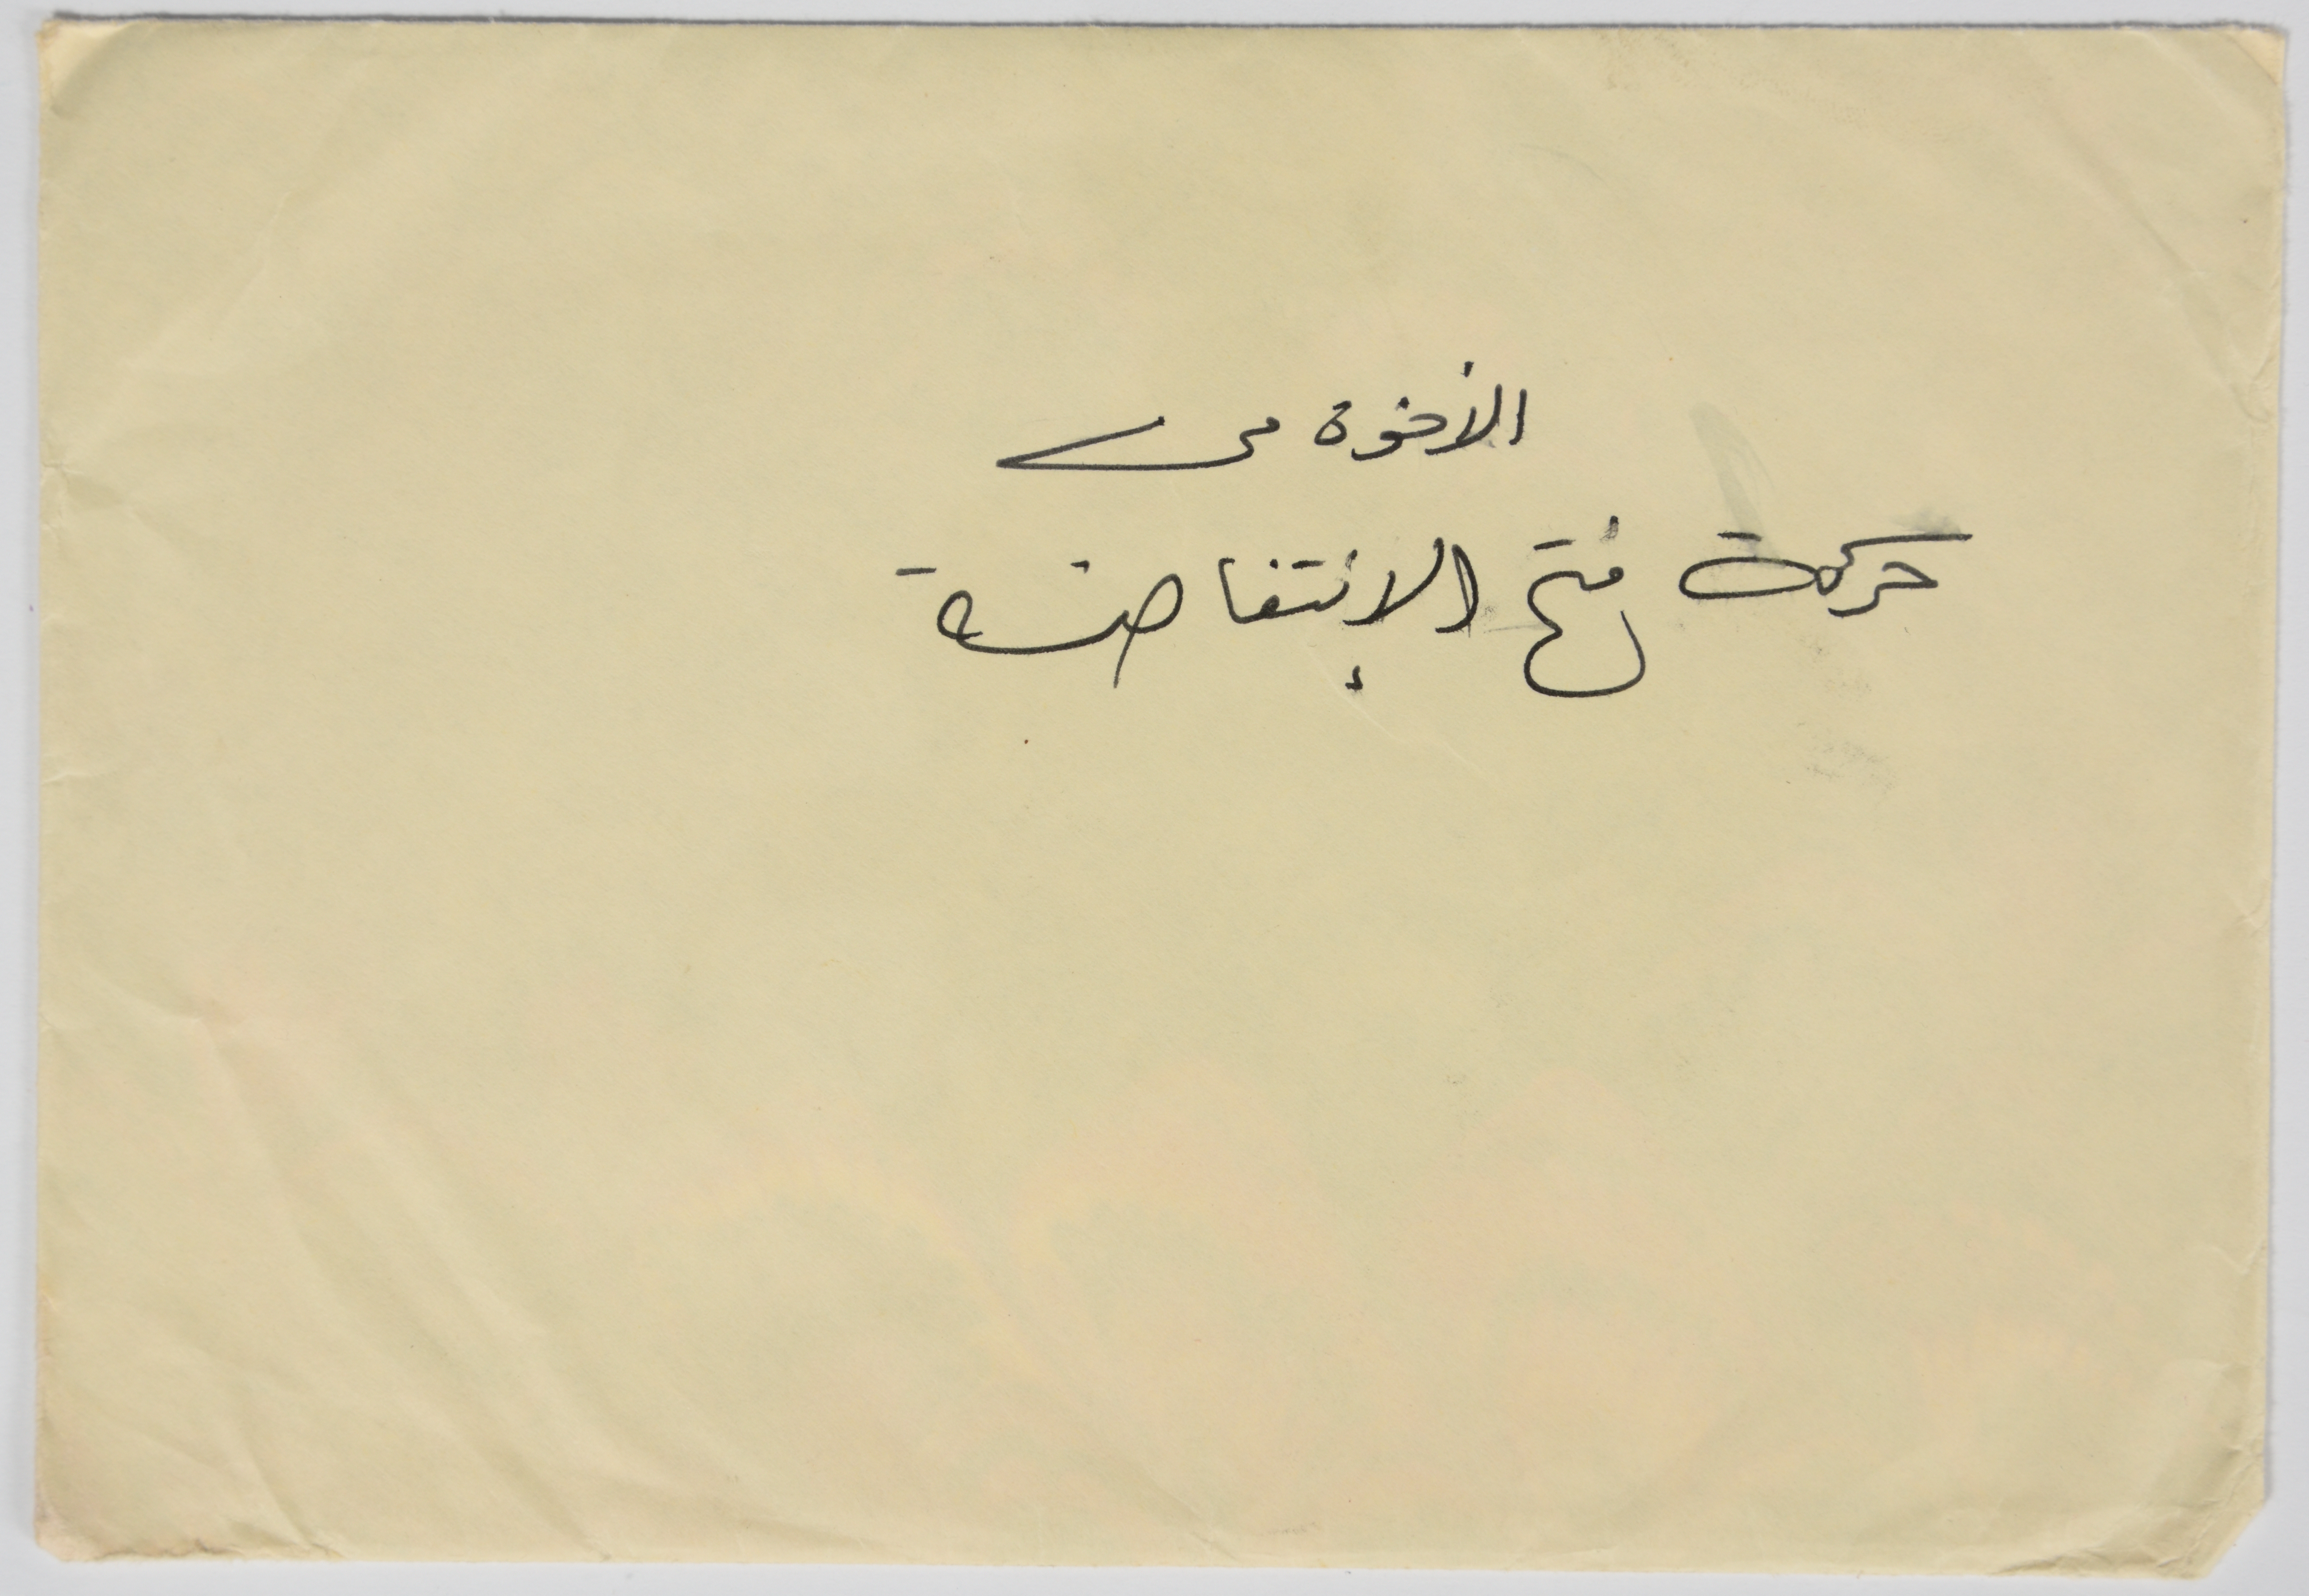 الأخوة في
حركة فتح الإنتفاضة